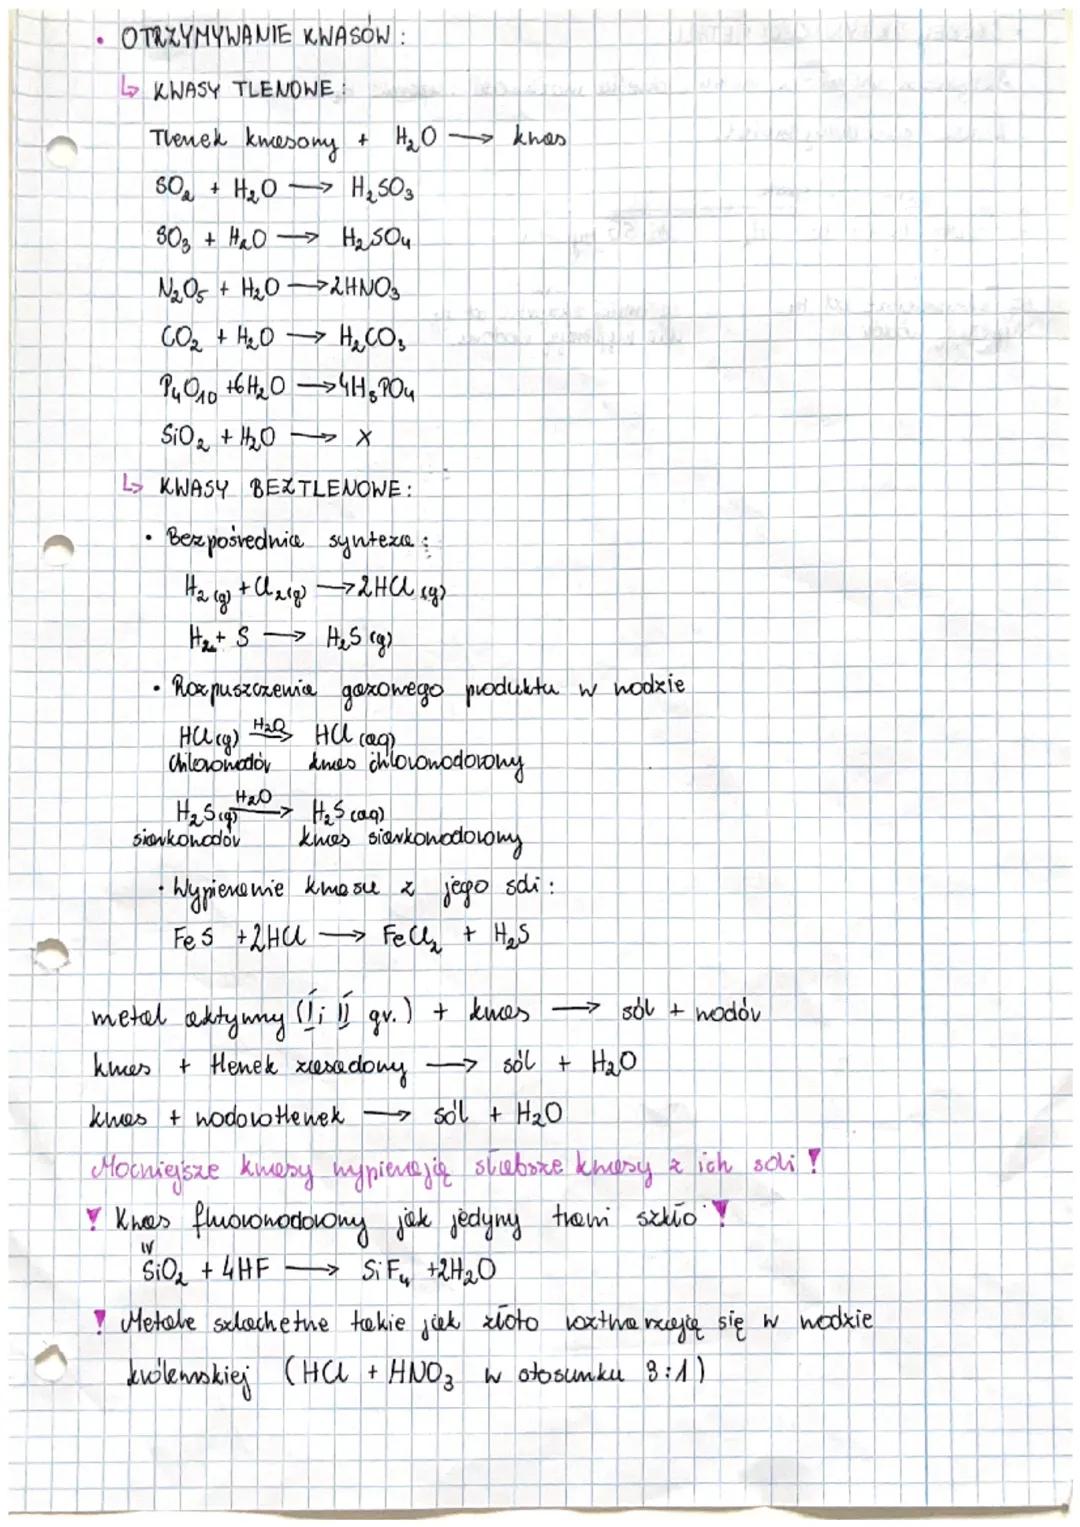 • OTRZYMYWANIE KWASÓW :
↳ KWASY TLENOWE :
Tlenek kwasowy + H₂O → kwas
SO₂ + H₂O → H₂SO₃
SO₃ + H₂O → H₂SO₄
N₂O₅ + H₂O → 2HNO₃
CO₂ + H₂O → H₂CO₃
P₄O₁₀ +6H₂O → 4H₃PO₄
SiO₂ + H₂O → X
↳ KWASY BEZTLENOWE :
• Bezpośrednia synteza :
H₂(g) + Cl₂(g) → 2HCl (g)
H₂ + S → H₂S (g)
• Rozpuszczenia gazowego produktu w wodzie
H₂O
HCl(g) → HCl (aq)
chlorowodór kwas chlorowodorowy
H₂O
H₂S(g) → H₂S (aq)
siarkowodór kwas siarkowodorowy
• Wypieranie kwasu z jego soli :
FeS +2HCl → FeCl₂ + H₂S
metal aktywny (I i II gr.) + kwas → sól + wodór
kwas + tlenek zasadowy → sól + H₂O
kwas + wodorotlenek → sól + H₂O
Mocniejsze kwasy wypierają słabsze kwasy z ich soli !
! Kwas fluorowodorowy jak jedyny trawi szkło !
IV
SiO₂ + 4HF → SiF₄ +2H₂O
! Metale szlachetne takie jak złoto roztwarzają się w wodzie
królewskiej (HCl + HNO₃ w stosunku 3:1)